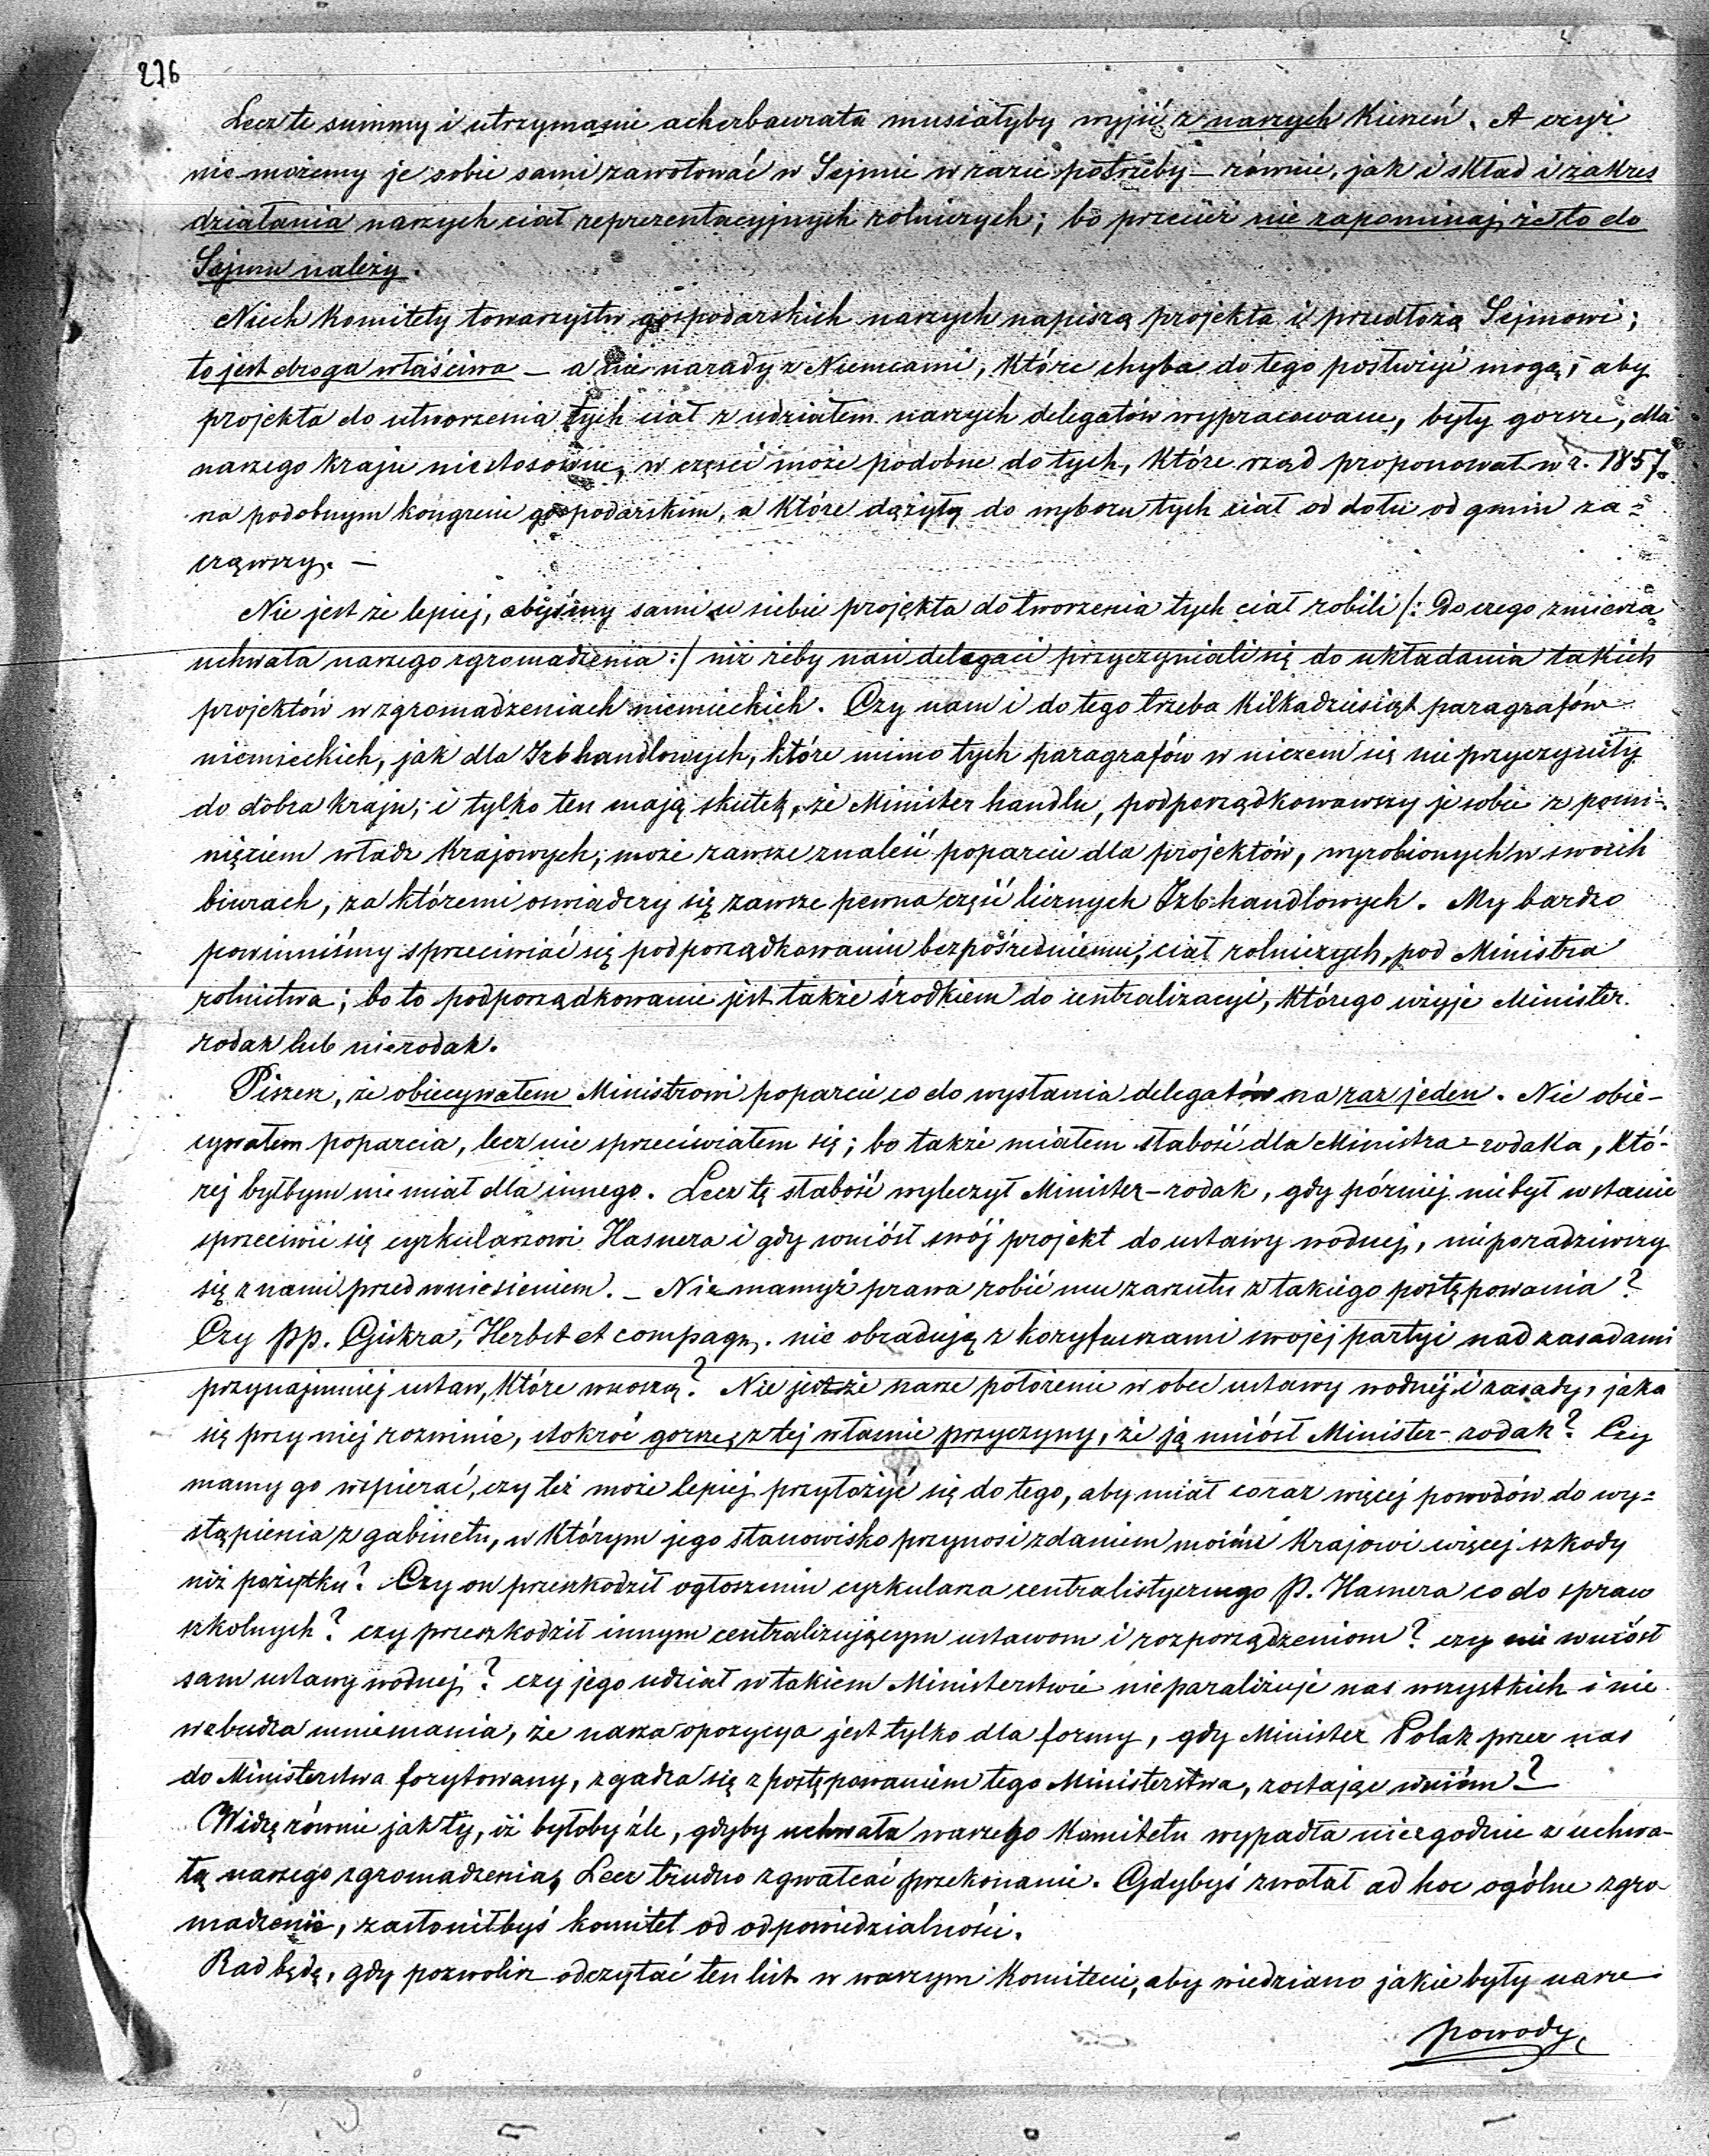 276
Lecz te summy i utrzymanie ackerbaurata musiałyby wyjść z naszych kieszeń. A czyż
nie możemy je sobie sami zawotować w Sejmie w razie potrzeby – równie, jak i skład i zakres
działania naszych ciał reprezentacyjnych rolniczych; bo przecież nie zapominaj, że to do
Sejmu należy.
Niech Komitety towarzystw gospodarskich naszych napiszą projekta i przedłożą Sejmowi;
to jest droga właściwa – a nie narady z Niemcami, które chyba do tego posłużyć mogą, aby
projekta do utworzenia tych ciał z udziałem naszych delegatów wypracowane, były gorsze, dla
naszego kraju niestosowne, w części może podobne do tych, które rząd proponował w r. 1857.
na podobnym kongresie gospodarskim, a które dążyły do wyboru tych ciał od dołu od gmin za-
cząwszy. –
Nie jest że lepiej, abyśmy sami u siebie projekta do tworzenia tych ciał robili /: Do czego zmierza
uchwała naszego zgromadzenia :/ niż żeby nasi delegaci przyczyniali się do układania takich
projektów w zgromadzeniach niemieckich. Czy nam i do tego trzeba kilkadziesiąt paragrafów
niemieckich, jak dla Izb handlowych, które mimo tych paragrafów w niczem się nie przyczyniły
do dobra kraju; i tylko ten mają skutek, że Minister handlu, podporządkowawszy je sobie z pomi-
nięciem władz krajowych, może zawsze znaleść poparcie dla projektów, wyrobionych w swoich
biurach, za któremi oswiadczy się zawsze pewna część licznych Izb handlowych. My bardzo
powinniśmy sprzeciwiać się podporządkowaniu bezpośredniemu, ciał rolniczych, pod Ministra
rolnictwa; bo to podporządkowanie jest także środkiem do centralizacyi, którego użyje Minister
rodak lub nierodak.
Piszesz, że obiecywałem Ministrowi poparcie co do wysłania delegatów na raz jeden. Nie obie-
cywałem poparcia, lecz nie sprzeciwiałem się; bo także miałem słabość dla Ministra-rodaka, któ-
rej byłbym nie miał dla innego. Lecz tę słabość wyleczył Minister-rodak, gdy później nie był w stanie
sprzeciwić się cyrkularzowi Hasnera i gdy wniósł swój projekt do ustawy wodnej, nie poradziwszy
się z nami przed wniesieniem. – Nie mamyż prawa robić mu zarzutu z takiego postępowania?
Czy pp. Giskra, Herbst et compagn. nie obradują z koryfeuszami swojej partyi nad zasadami
przynajmniej ustaw, które wnoszą? Nie jestże nasze położenie w obec ustawy wodnej i zasady, jaka
się przy niej rozwinie, stokroć gorszę z tej własnie przyczyny, że ją wniósł Minister-rodak? Czy
mamy go wspierać, czy też może lepiej przyłożyć się do tego, aby miał coraz więcej powodów do wy-
stąpienia z gabinetu, w którym jego stanowisko przynosi zdaniem moiém krajowi więcej szkody
niż pożytku? Czy on przeszkodził ogłoszeniu cyrkularza centralistycznego P. Hasnera co do spraw
szkolnych? czy przeszkodził innym centralizującym ustawom i rozporządzeniom? czy nie wniósł
sam ustawy wodnej? czy jego udział w takiem Ministerstwie nie paraliżuje nas wszystkich i nie
wzbudza mniemania, że nasza opozycya jest tylko dla formy, gdy Minister Polak przez nas
do Ministerstwa forytowany, zgadza się z postępowaniem tego Ministerstwa, zostając w niém?
Widzę równie jak ty, iż byłoby źle, gdyby uchwała waszego Komitetu wypadła niezgodnie z uchwa-
łą naszego zgromadzenia, Lecz trudno zgwałcać przekonanie. Gdybyś zwołał ad hoc ogólne zgro-
madzenie, zasłoniłbyś komitet od odpowiedzialności.
Rad będę, gdy pozwolisz odczytać ten list w waszym Komitecie, aby wiedziano jakie były nasze
powody,